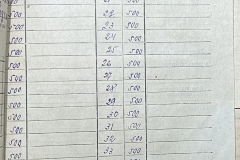 500 500
500 22 500
500 23 500
500 24 500
500 25 500
500 26 500
500 27 500
500 28 500
500 29 500
500 30 500
500 31 500
500 32 500
500 33 500